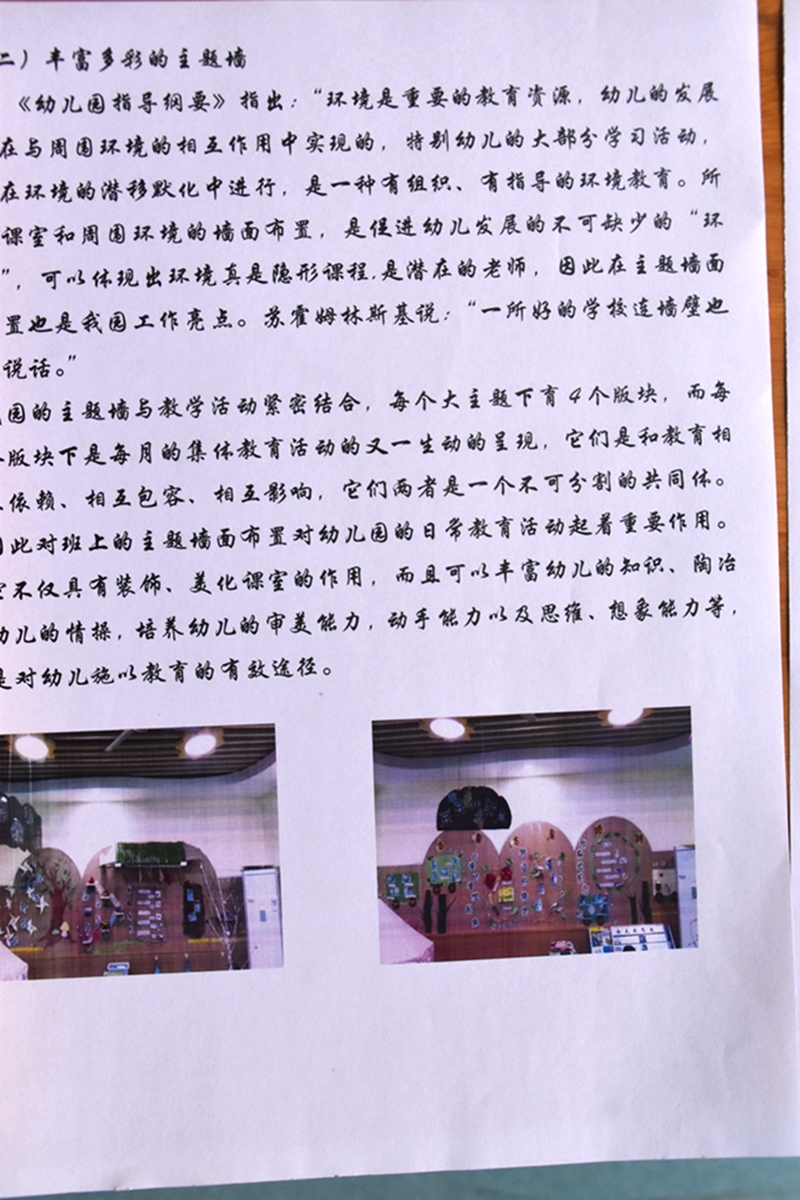 二）丰富多彩的主题墙
《幼儿园指导纲要》指出：“环境是重要的教育资源，幼儿的发展
在与周围环境的相互作用中实现的，特别幼儿的大部分学习活动，
在环境的潜移默化中进行，是一种有组织、有指导的环境教育。所
课室和周围环境的墙面布置，是促进幼儿发展的不可缺少的“环
”，可以体现出环境真是隐形课程.是潜在的老师，因此在主题墙面
置也是我园工作亮点。苏霍姆林斯基说：“一所好的学校连墙壁也
说话。”
园的主题墙与教学活动紧密结合，每个大主题下育4个版块，而每
版块下是每月的集体教育活动的又一生动的呈现，它们是和教育相
依赖、相互包容、相互影响，它们两者是一个不可分割的共同体。
因此对班上的主题墙面布置对幼儿园的日常教育活动起着重要作用。
它不仅具有装饰、美化课室的作用，而且可以丰富幼儿的知识、陶冶
幼儿的情操，培养幼儿的审美能力，动手能力以及思维、想象能力等，
是对幼儿施以教育的有效途径。